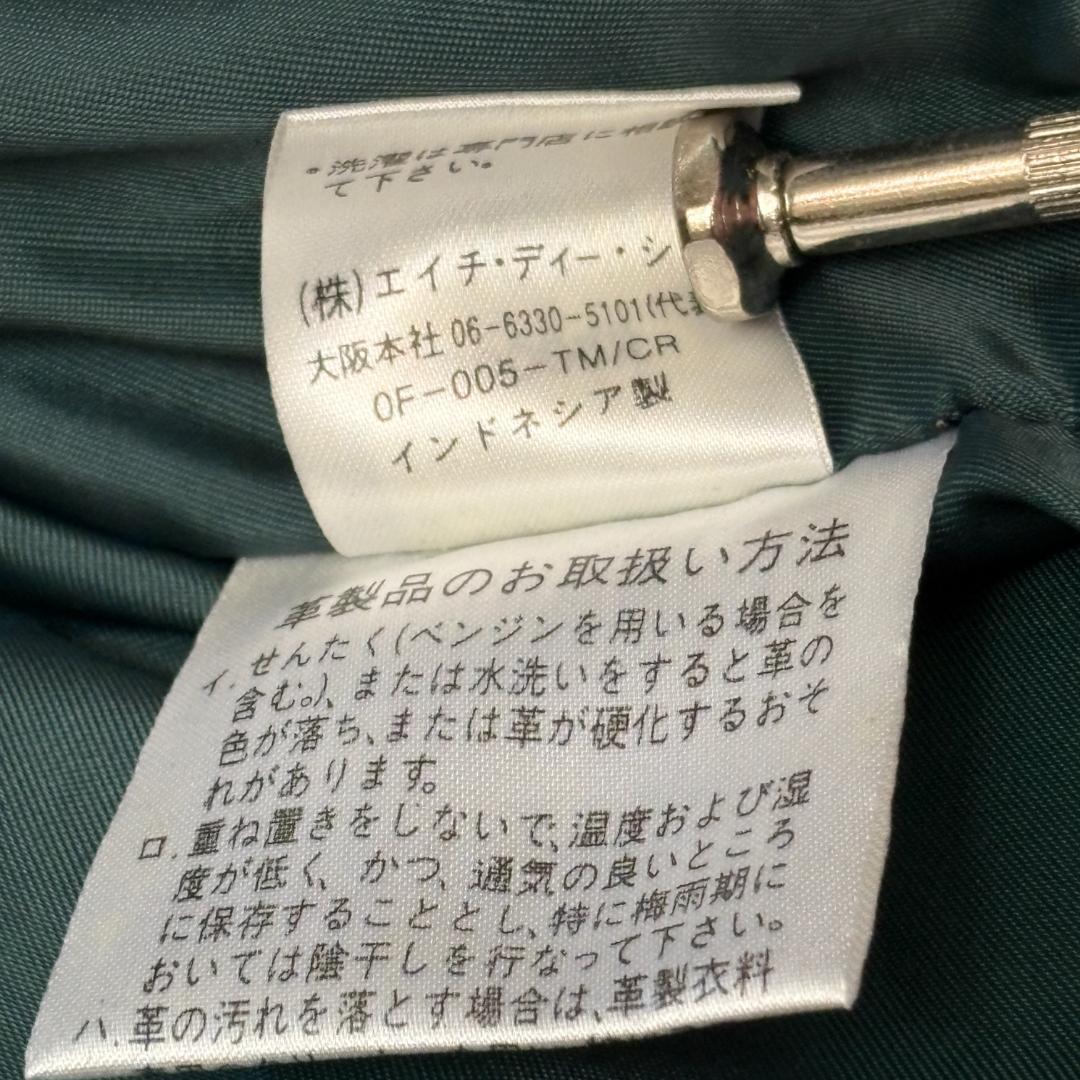 ・洗濯は専門店に相談
て下さい。
(株)エイチ・ディー・シ
大阪本社 06-6330-5101(代表
OF-005-TM/CR
インドネシア製
革製品のお取扱い方法
イ.せんたく(ベンジンを用いる場合を
含む。)、または水洗いをすると革の
色が落ち、または革が硬化するおそ
れがあります。
ロ.重ね置きをしないで、温度および湿
度が低く、かつ、通気の良いところ
に保存することとし、特に梅雨期に
おいては陰干しを行なって下さい。
ハ.革の汚れを落とす場合は、革製衣料